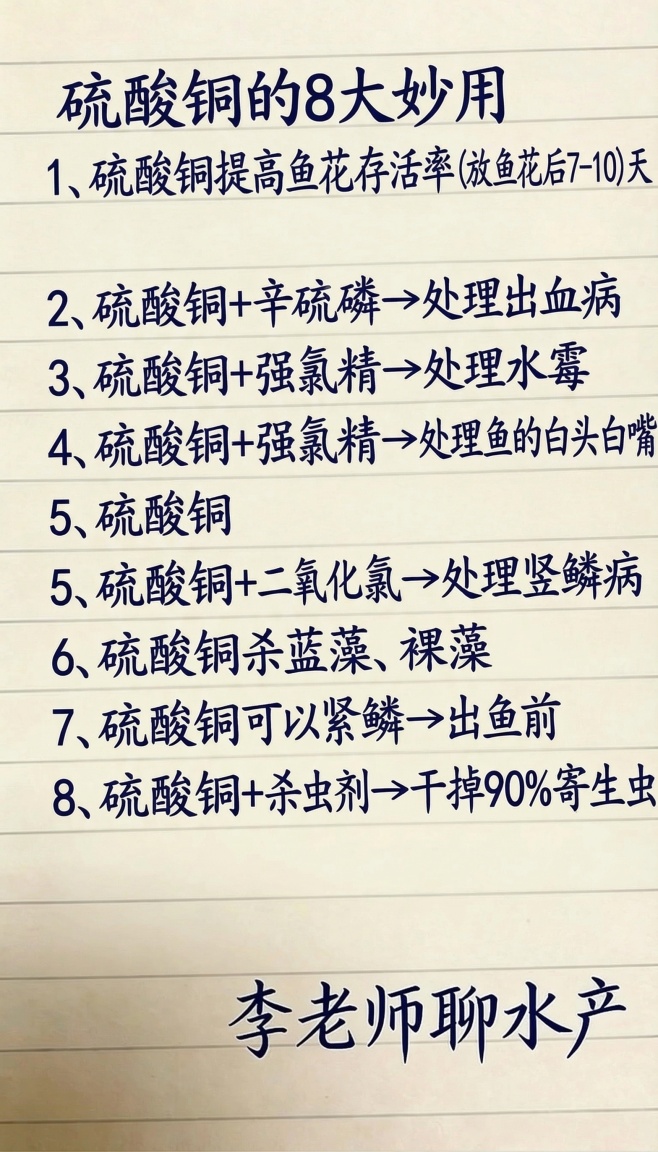 硫酸铜的8大妙用
1、硫酸铜提高鱼花存活率(放鱼花后7-10)天
2、硫酸铜+辛硫磷→处理出血病
3、硫酸铜+强氯精→处理水霉
4、硫酸铜+强氯精→处理鱼的白头白嘴
5、硫酸铜
5、硫酸铜+二氧化氯→处理竖鳞病
6、硫酸铜杀蓝藻、裸藻
7、硫酸铜可以紧鳞→出鱼前
8、硫酸铜+杀虫剂→干掉90%寄生虫
李老师聊水产